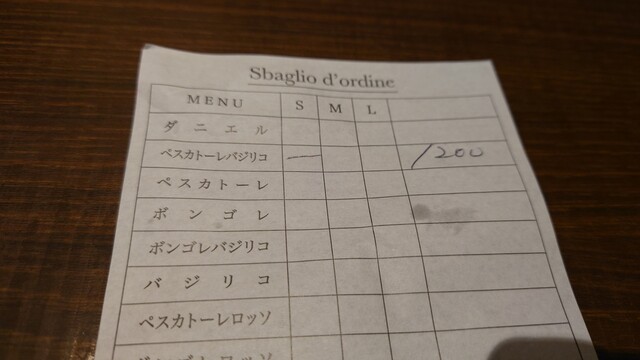 Sbaglio d'ordine
MENU S M L
ダニエル
ペスカトーレバジリコ 一 1200
ペスカトーレ
ボンゴレ
ボンゴレバジリコ
バジリコ
ペスカトーレロッソ
ボンゴレロッソ